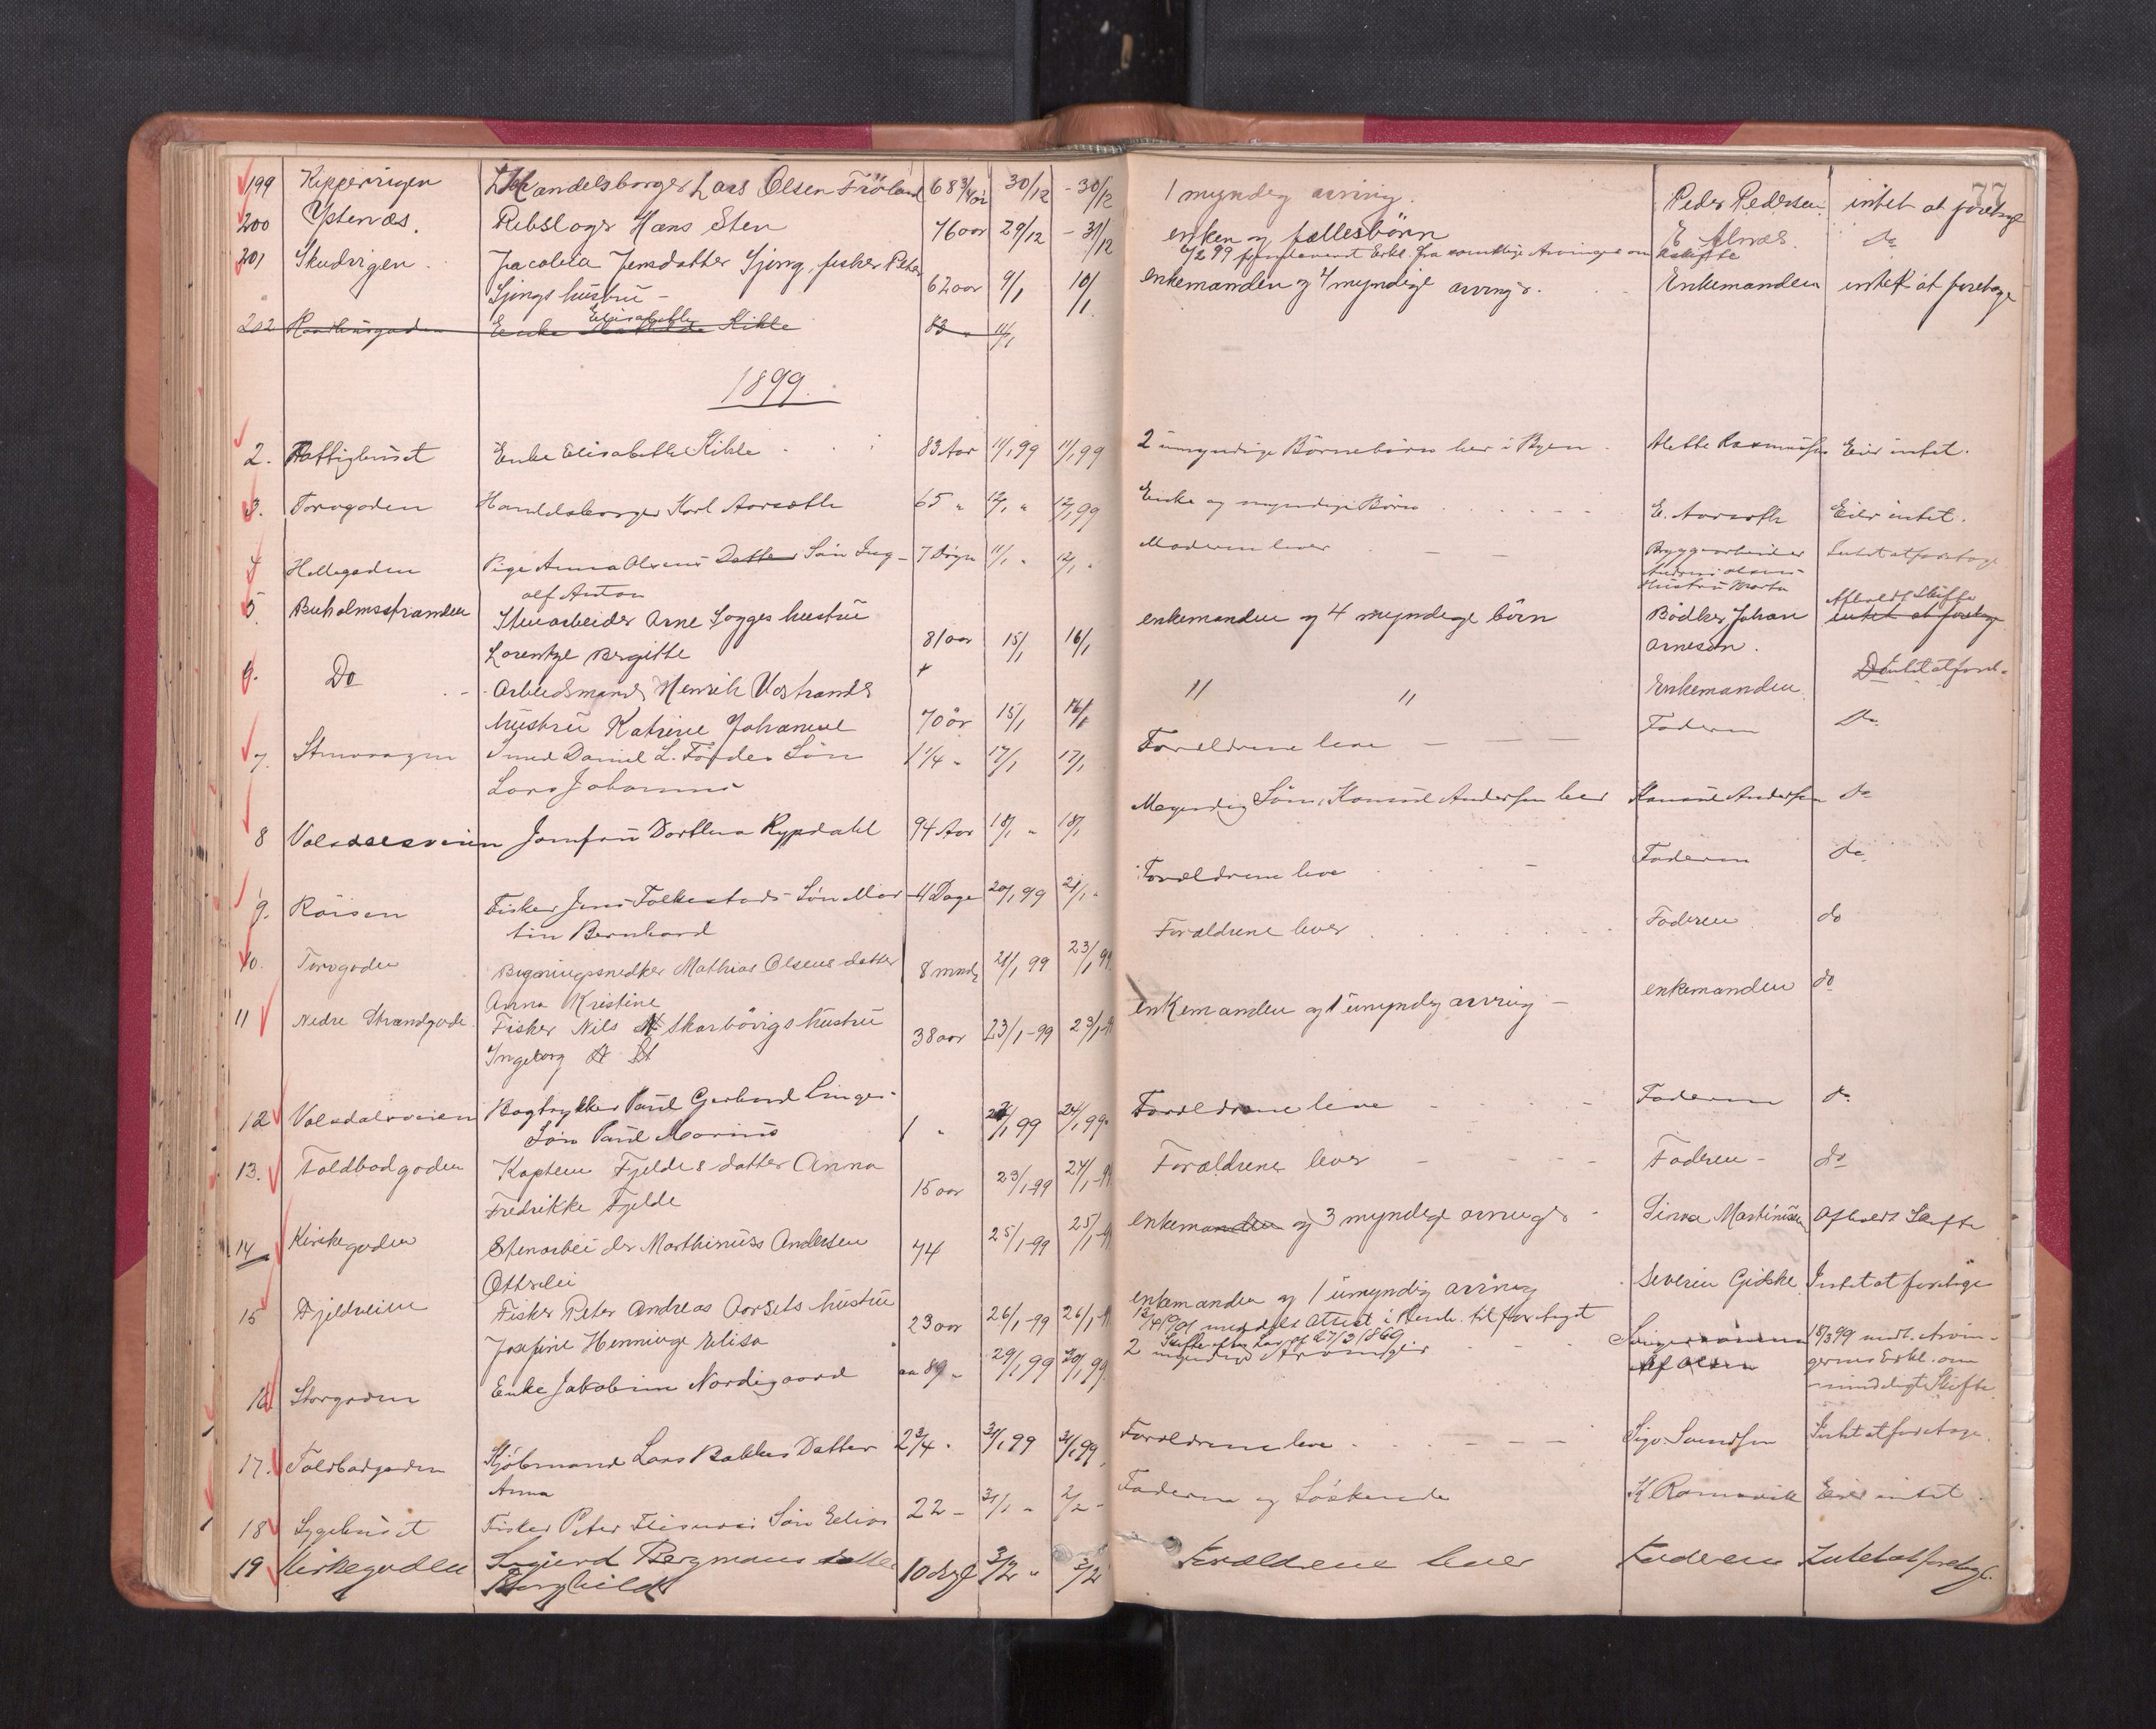 77
199 Kippervigen Handelsborger Lars Olsen Fröland 68 3/4 år 30/12 - 30/12 1 myndig arving. Peder Pedersen intet at foretage
200 Ystenæs. Rebslager Hans Sten 76 aar 29/12 - 31/12 enken og fællesbörn E. Alnæs. do
6/2 99 fra samtlige Arvinger om
201 Skudvigen. Jacobia Jensdatter Sjong, fisker Peter
Sjongs hustru - 62 aar 9/1 10/1 enkemanden og 4 myndige arving. Enkemanden intet at foretage
202 Enke Elisabeth Kihle 83 11/1
1899.
2. Fattighuset Enke Elisabeth Kihle 83 Aar 11/1 99 11/1 99 2 umyndige Börnebörn her i Byen Mette Rasmussen Eier intet.
3. Torvgaden Handelsborger Karl Aarsæth 65 " 12/1 " 12/1 99 Enke og myndige Börn E. Aarsæth Eier intet.
4 Hellegaden Pige Anna Olsens Datter Sön Ing- 7 Døgn 11/1 " 12/1 " Moderen lever Bryggearbeider Intet at foretage
olf Anton hustru Marta
5. Buholmsstranden Stenarbeider Arne Sogges hustru enkemanden og 4 myndige börn Bödker Johan Afholdt Skifte
intet at foretage
Lorentze Bergitte 81 aar 15/1 16/1 Arnesen.
6. Do Arbeidsmand Henrik Vestrands " " Enkemanden Do intet at foret.
hustru Katrine Johanne 70 år 15/1 16/1
7. Smed Daniel L. Fördes Sön 1 1/4 " 17/1 17/1 Forældrene leve Faderen do
Lars Johannes
8 Volsdalsveien Jomfru Dorthea Rypdahl 94 Aar 18/1 " 18/1 Myndig Sön, Andersen her Andersen do
9. Röisen Fisker Jens Folkestads Sön Mar- 4 Dage 20/1 99 21/1 " Forældrene leve Faderen do
tin Bernhard
10. Torvgaden Bygningssnedker Mathias Olsens datter 8 mnd 21/1 99 23/1 99 Forældrene lever Faderen do
Anna Kristine
11 Nedre Strandgade Fisker Nils Skarbövigs hustru 38 aar 23/1-99 23/1-99 enkemanden og 1 umyndig arving - enkemanden do
Ingeborg
12 Volsdalsveien Bogtrykker Paul Gerhard Linges- 1 " 99 24/1 99 Forældrene leve Faderen do
Sön Paul Marius
13. Toldbodgaden Kaptein Fjeldes datter Anna 15 aar 23/1-99 24/1-99 Forældrene lever Faderen - do
Fredrikke Fjelde
14 Kirkegaden Stenarbeider Marthinus Andersen 74 25/1-99 25/1-99 enkemanden og 3 myndige arvinger Sivra Martinusen Afholdt Skifte
Otterlei
15 Fjeldveien Fisker Peter Andreas Aarsets hustru 23 aar 26/1-99 26/1-99 enkemanden og 1 umyndig arving Severin Giske Intet at foretage
Josefine Henninge Elisa meddelt Attest i til foretaget
Skifte efter Lov af 27/3 1869
16. Storgaden Enke Jakobine Nordigaard 89 " 29/1 99 30/1 99 2 myndige Arvinger Svigersönnen 18/3 99 medt. Arvin-
Olsen gernes Erkl. om
mindeligt Skifte
17. Toldbodgaden Kjöbmand Lars Bakkes Datter 2 3/4 " 31/1 99 31/1 99 Forældrene leve Sigv. Svendsen Intet at foretage.
Anna
18 Sygehuset Fisker Peter Sön Elias 22 - 31/1 " 2/2 - Faderen og Söskende K Romsvik Eier intet
19 Kirkegaden Sigurd Bergmans datter 10 dage 3/2 " 3/2 Forældrene lever Faderen Intet at foretage.
Borghild